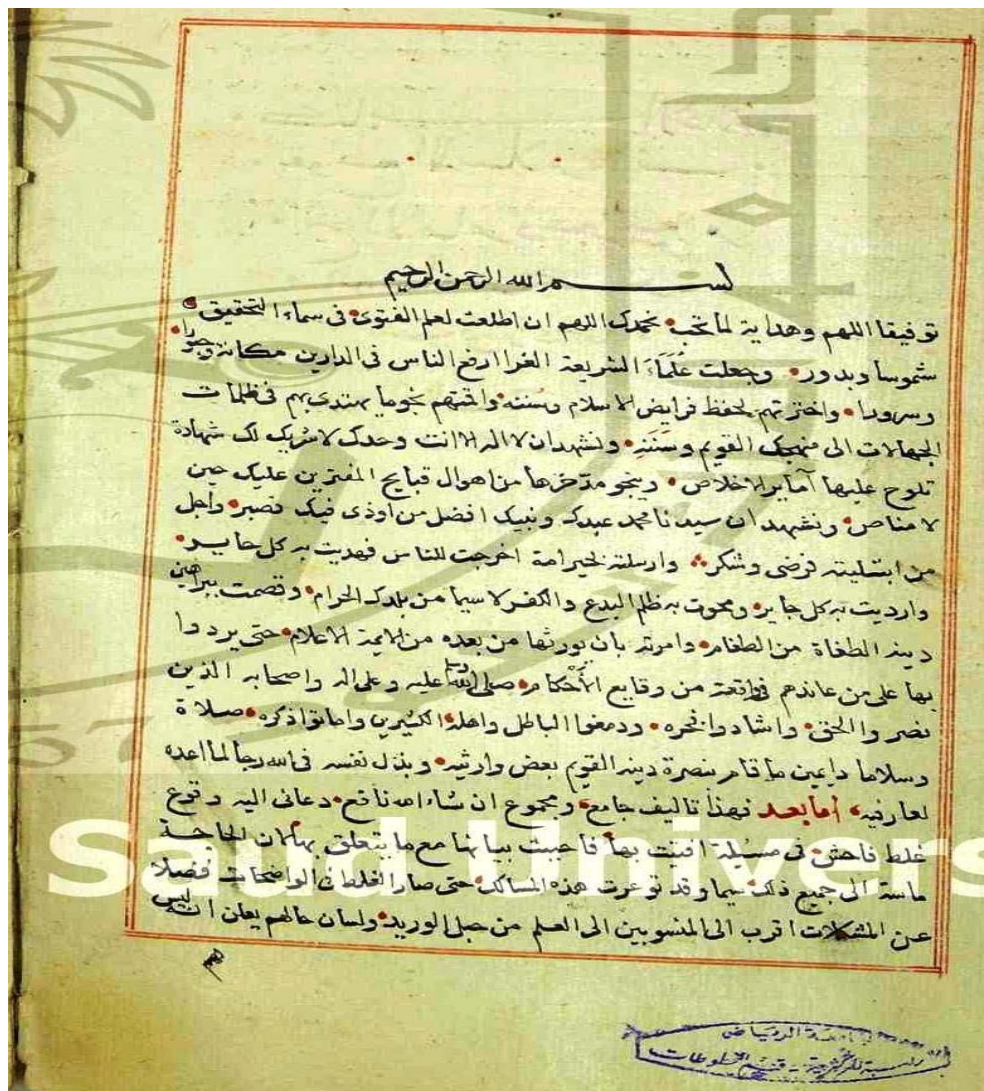 بسم الله الرحمن الرحيم
توفيقا اللهم وهداية لما تحب نحمدك اللهم ان اطلعت لعلم الفتوى في سماء التحقيق
شموسا وبدور وجعلت علماء الشريعة الغرا ارفع الناس في الدارين مكانة وحبورا
وسرورا واخترتهم لحفظ فرايض الاسلام وسننه واقمتهم نجوما يهتدى بهم في ظلمات
الجهالات الى منهجك القويم وسننه ونشهد ان لا اله الا انت وحدك لا شريك لك شهادة
تلوح عليها أماير الاخلاص وينجو مدخرها من اهوال قبايح المفترين عليك حين
لا مناص ونشهد ان سيدنا محمد عبدك ونبيك افضل من اوذى فيك فصبر واجل
من ابتليته فرضى وشكر وارسلته لخير امة اخرجت للناس فهديت به كل حاير
وارديت به كل جاير ومحوت به ظلم البدع والكفر لا سيما من بلدك الحرام وقصمت ببراهين
دينه الطغاة من الطغام وامرته بأن يورثها من بعده من الايمة الاعلام حتى يردوا
بها على من عاندهم في واقعة من وقايع الأحكام صلى الله وسلم عليه وعلى اله واصحابه الذين
نصروا الحق واشادوا فخره ودمغوا الباطل واهله الكثيرين واماتوا ذكره صلاة
وسلاما دايمين ما قام بنصرة دينه القويم بعض وارثيه وبذل نفسه في الله رجا لما اعده
لعارفيه أما بعد فهذا تاليف جامع ومجموع ان شاء الله نافع دعاني اليه وقوع
غلط فاحش في مسيلة افتيت بها فاحببت بيانها مع ما يتعلق بها لان الحاجة
ماسة الى جميع ذلك سيما وقد توعرت هذه المسالك حتى صار الغلط في الواضحات فضلا
عن المشكلات اقرب الى المنسوبين الى العلم من حبل الوريد ولسان حالهم يعلن انه ليس
Saud Univers
جامعة الرياض
قسم المخطوطات